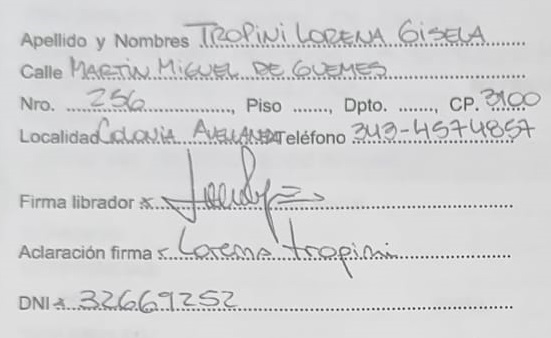 Apellido y Nombres TROPINI LORENA GISELA
Calle MARTIN MIGUEL DE GUEMES
Nro. 256, Piso ......., Dpto. ......., CP. 3100
Localidad COLONIA AVELLANEDA Teléfono 343-4574857
Firma librador x
Aclaración firma x Lorena tropini
DNI x 32669252